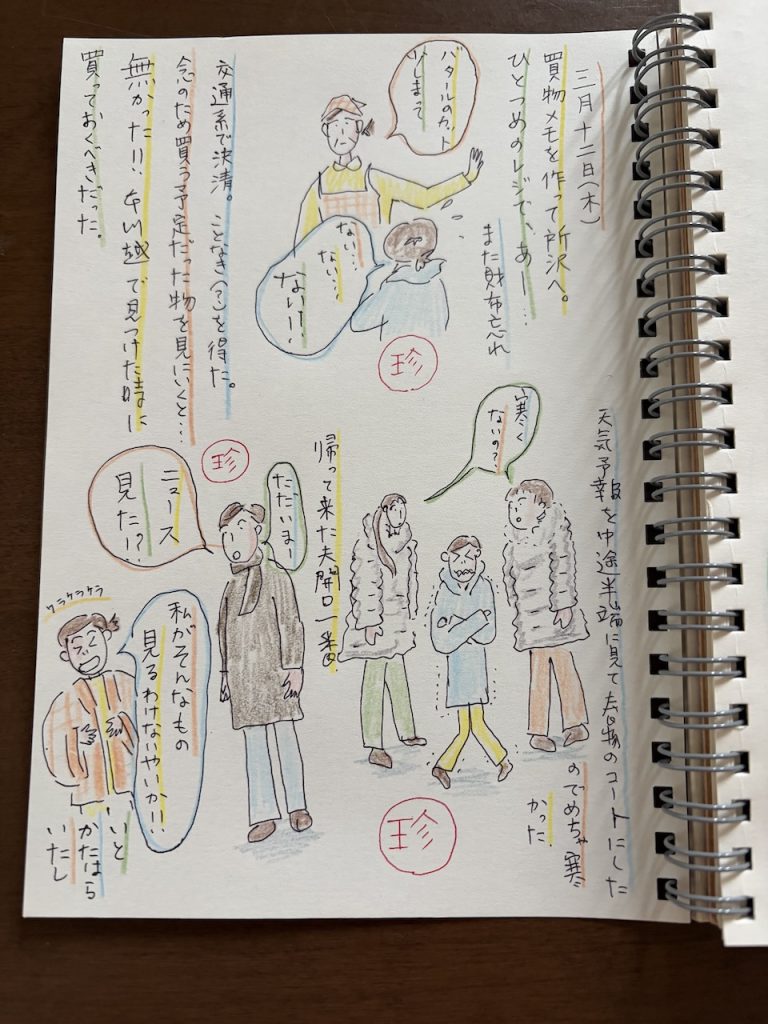 三月十二日(木)
買物メモを作って所沢へ。
ひとつめのレジで、あー…
また財布忘れ
バタールのカット
しまって
ない…
ない…
ない!!
珍
交通系で決済。ことなき(?)を得た。
念のため買う予定だった物を見にいくと…
無かった!! 本川越で見つけた時に
買っておくべきだった。
天気予報を中途半端に見て春物のコートにした
のでめちゃ寒
かった
寒く
ないの?
珍
帰って来た夫開口一番
ただいまー
ニュース
見た!?
珍
私がそんなもの
見るわけないやいか!!
ケラケラケラ
いと
かたはら
いたし